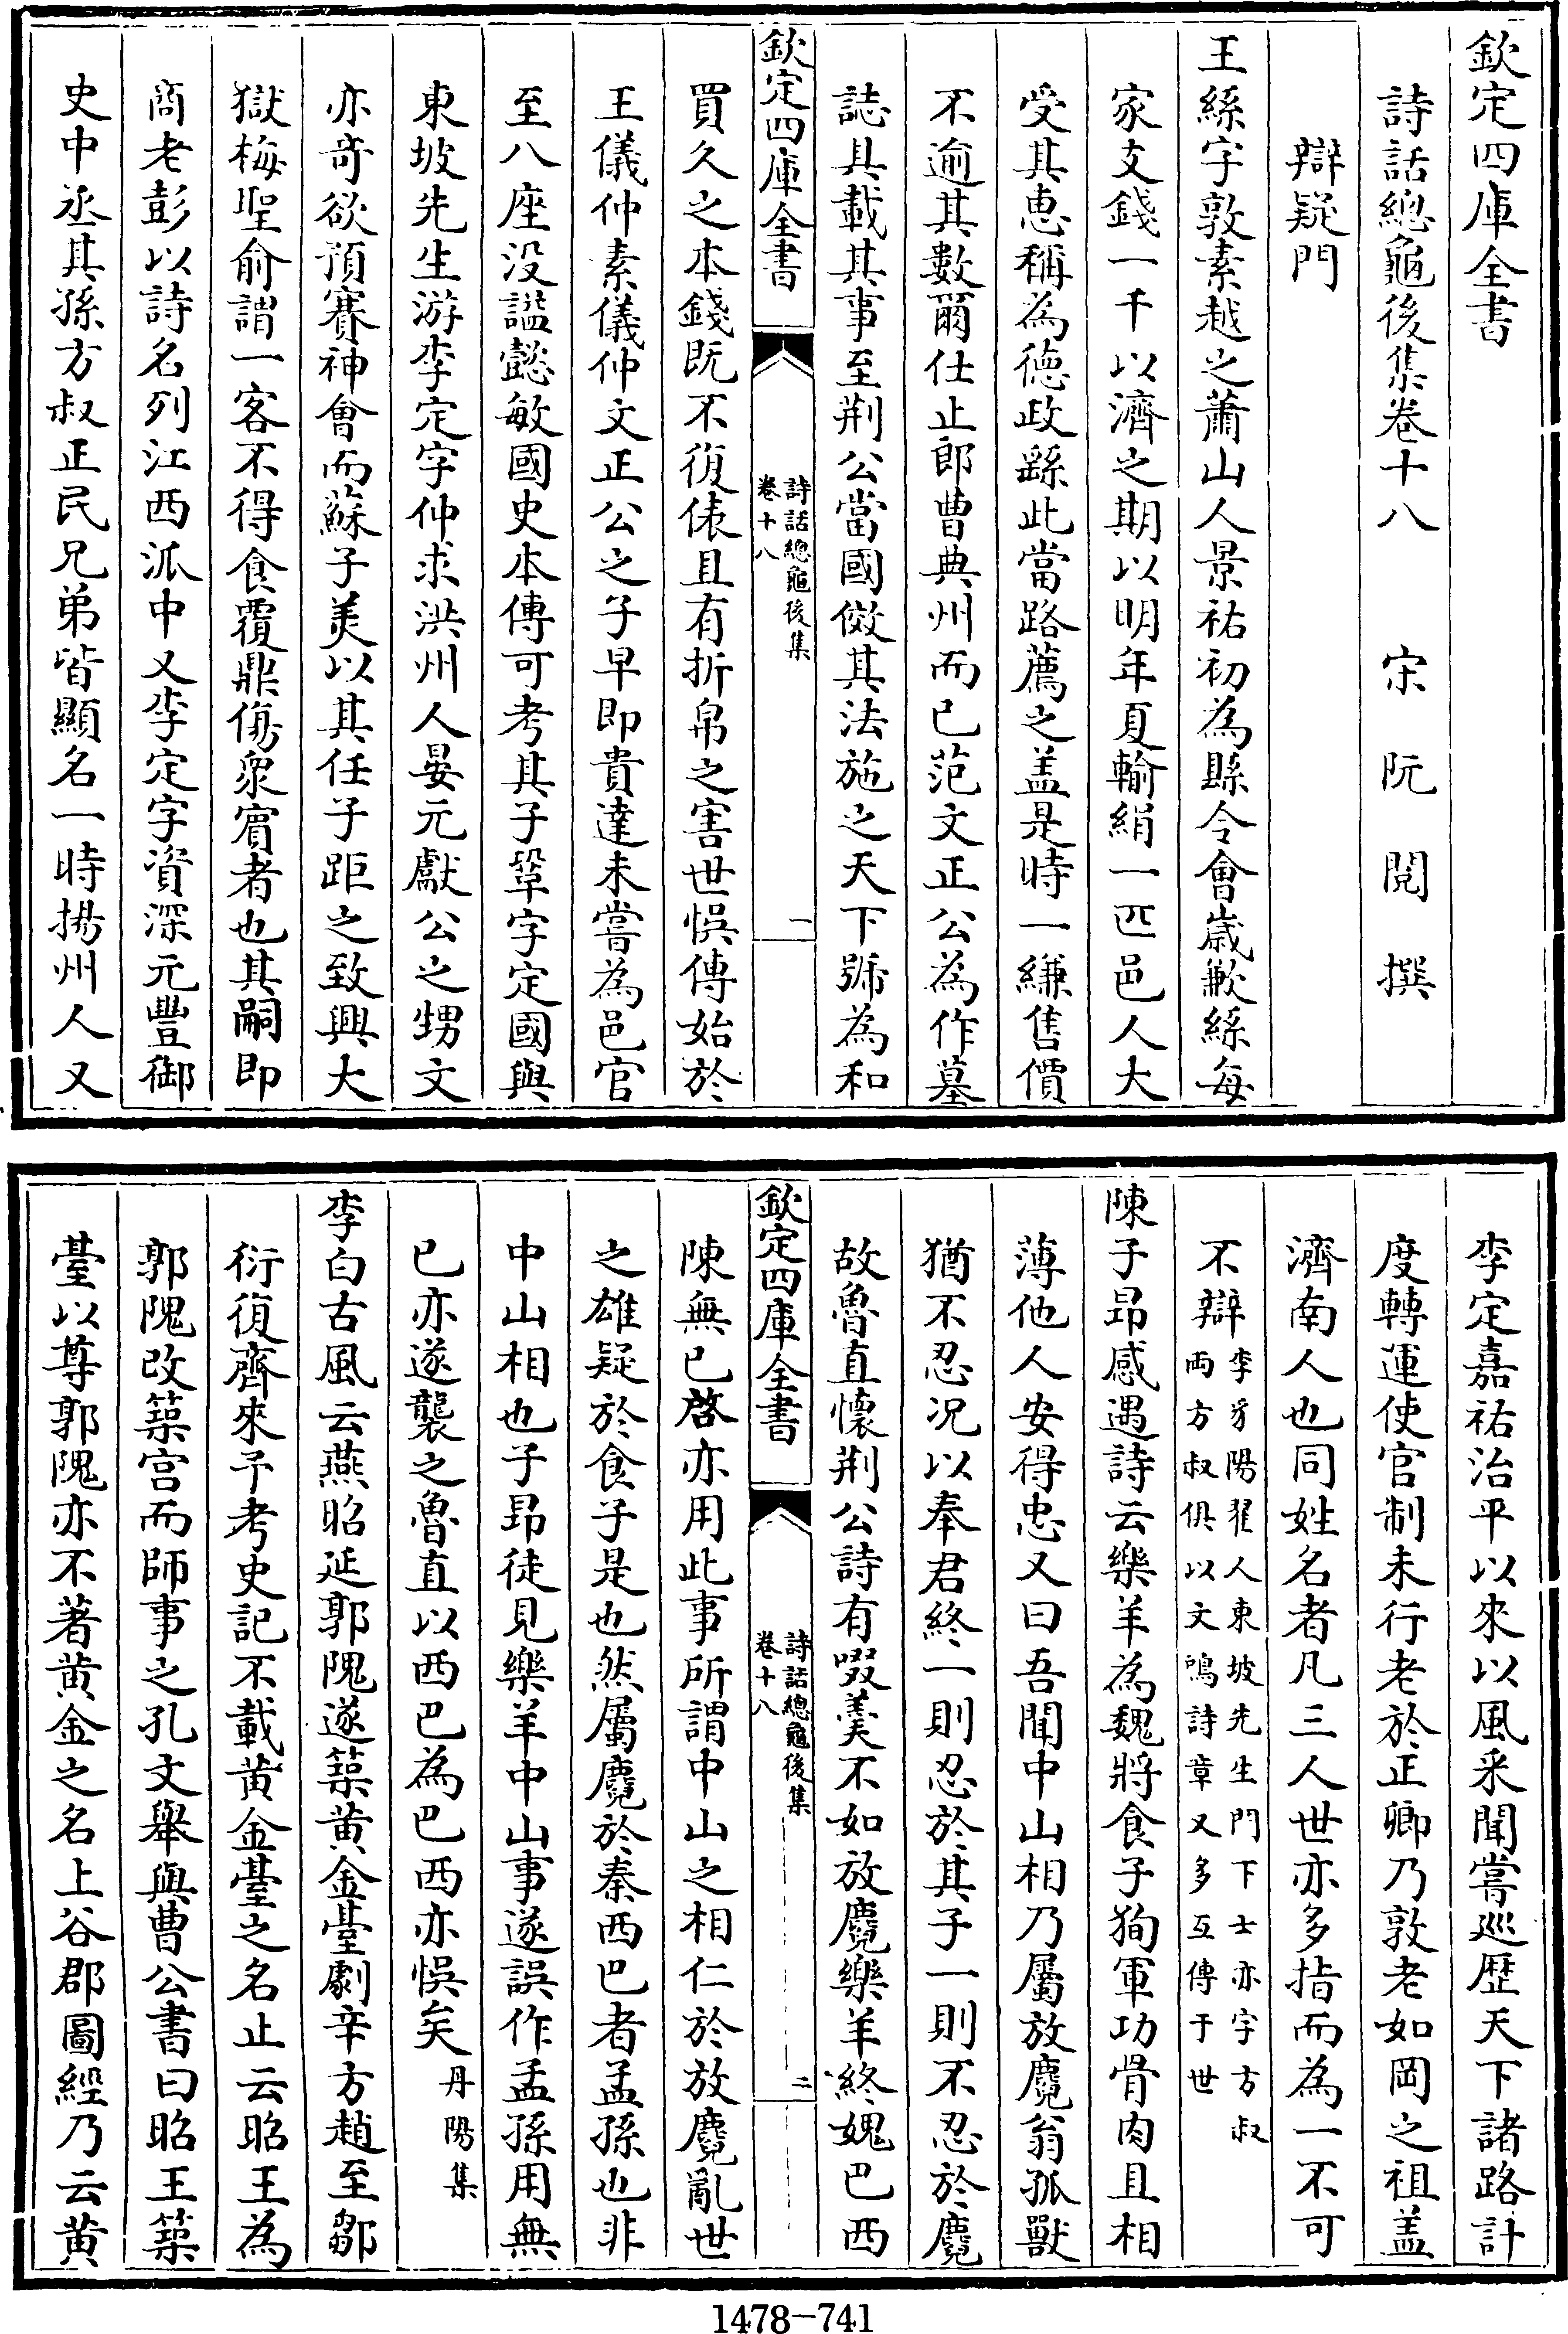 欽定四庫全書
詩話總龜後集卷十八　宋　阮閱　撰
辯疑門
王絲字敦素越之蕭山人景祐初為縣令會歲歉絲每
家支錢一千以濟之期以明年夏輸絹一匹邑人大
受其恵稱為徳政繇此當路薦之盖是時一縑售價
不逾其數爾仕止郎曹典州而已范文正公為作墓
誌具載其事至荆公當國倣其法施之天下號為和
欽定四庫全書
詩話總龜後集
卷十八
一
買久之本錢既不復俵且有折帛之害世悞傳始於
王儀仲素儀仲文正公之子早即貴達未嘗為邑官
至八座没諡懿敏國史本傳可考其子鞏字定國與
東坡先生游李定字仲求洪州人晏元獻公之甥文
亦奇欲預賽神會而蘇子美以其任子距之致興大
獄梅聖俞謂一客不得食覆鼎傷衆賓者也其嗣即
商老彭以詩名列江西派中又李定字資深元豐御
史中丞其孫方叔正民兄弟皆顯名一時揚州人又
李定嘉祐治平以來以風采聞嘗廵歴天下諸路計
度轉運使官制未行老於正卿乃敦老如岡之祖盖
濟南人也同姓名者凡三人世亦多指而為一不可
不辯李豸陽翟人東坡先生門下士亦字方叔
両方叔俱以文鳴詩章又多互傳于世
陳子昻感遇詩云樂羊為魏將食子狥軍功骨肉且相
薄他人安得忠又曰吾聞中山相乃屬放麑翁孤獸
猶不忍况以奉君終一則忍於其子一則不忍於麑
故魯直懐荆公詩有啜羮不如放麑樂羊終媿巴西
欽定四庫全書
詩話總龜後集
卷十八
二
陳無已啓亦用此事所謂中山之相仁於放麑亂世
之雄疑於食子是也然屬麑於秦西巴者孟孫也非
中山相也子昻徒見樂羊中山事遂誤作孟孫用無
已亦遂襲之魯直以西巴為巴西亦悞矣丹陽集
李白古風云燕昭延郭隗遂築黄金臺劇辛方趙至鄒
衍復齊來予考史記不載黄金臺之名止云昭王為
郭隗改築宫而師事之孔文舉與曹公書曰昭王築
臺以尊郭隗亦不著黄金之名上谷郡圖經乃云黄
1478-741